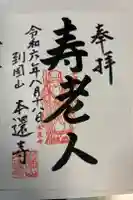 奉拝
寿老人
令和六年八月十八日
到岡山
本還寺